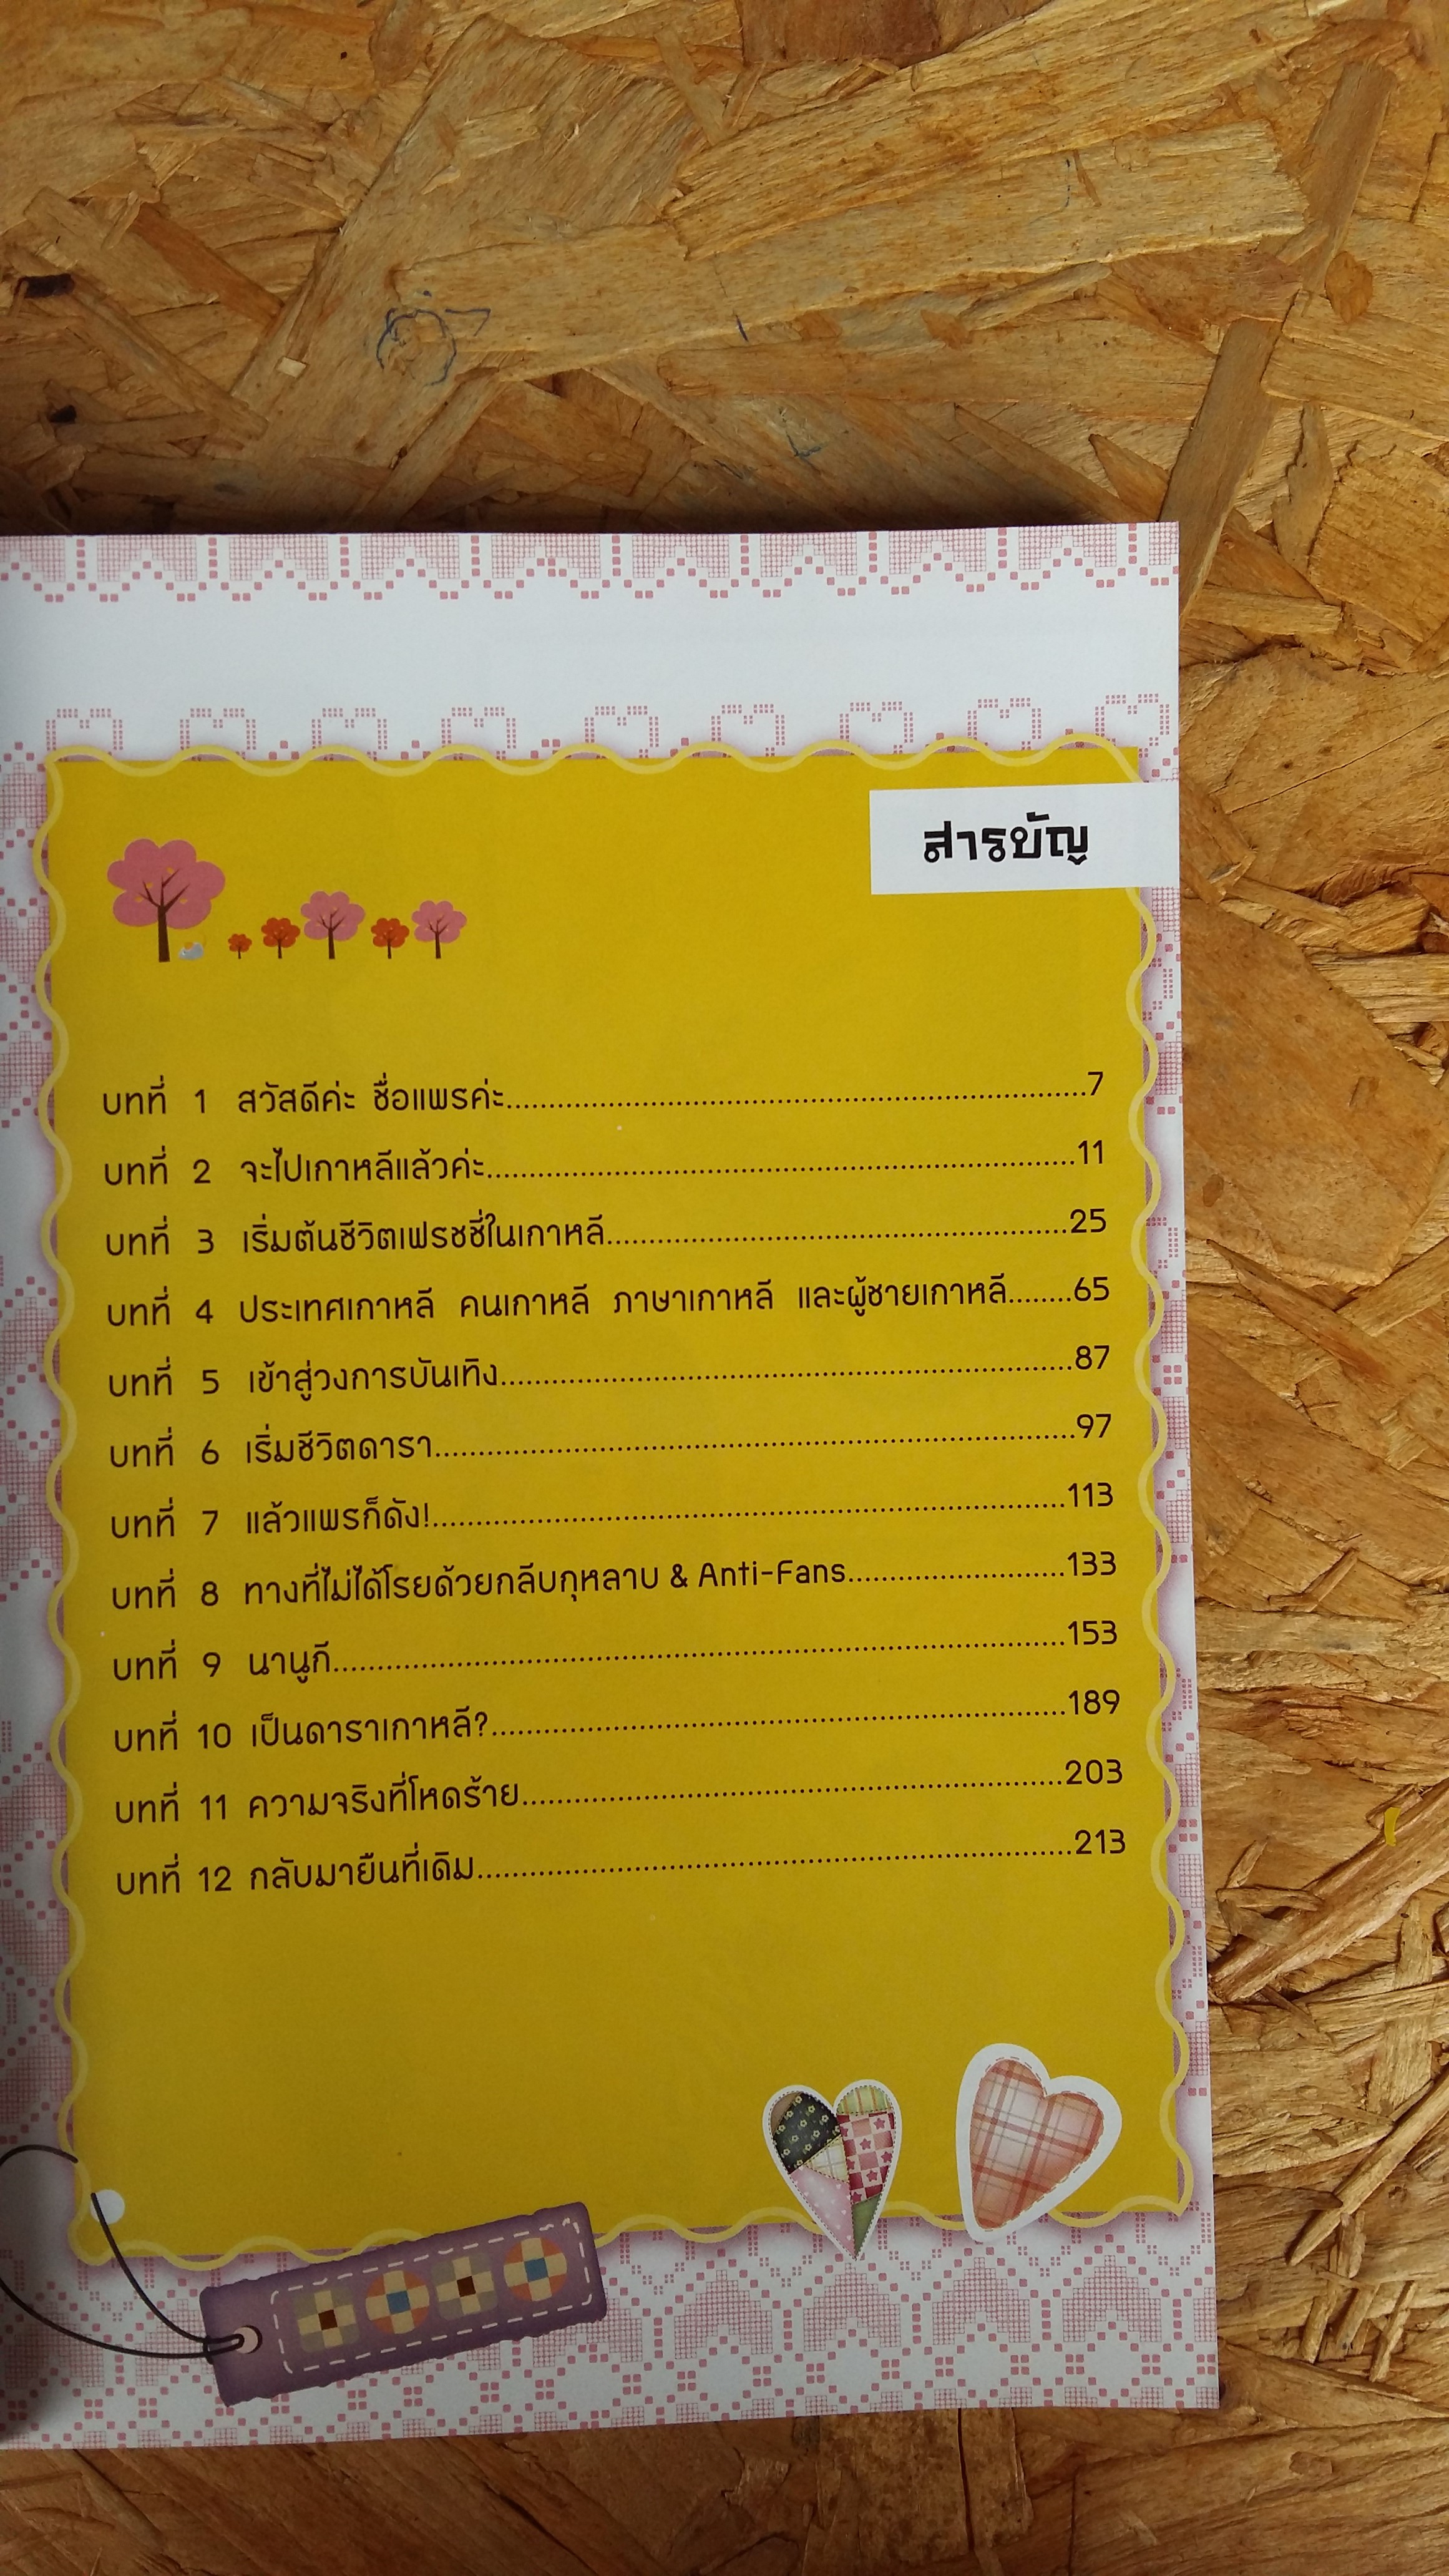 สารบัญ
บทที่ 1 สวัสดีค่ะ ชื่อแพรค่ะ.......................................................................7
บทที่ 2 จะไปเกาหลีแล้วค่ะ.......................................................................11
บทที่ 3 เริ่มต้นชีวิตเฟรชชี่ในเกาหลี.......................................................25
บทที่ 4 ประเทศเกาหลี คนเกาหลี ภาษาเกาหลี และผู้ชายเกาหลี........65
บทที่ 5 เข้าสู่วงการบันเทิง.....................................................................87
บทที่ 6 เริ่มชีวิตดารา.............................................................................97
บทที่ 7 แล้วแพรก็ดัง!...........................................................................113
บทที่ 8 ทางที่ไม่ได้โรยด้วยกลีบกุหลาบ & Anti-Fans..........................133
บทที่ 9 นานูกี.......................................................................................153
บทที่ 10 เป็นดาราเกาหลี?.....................................................................189
บทที่ 11 ความจริงที่โหดร้าย.................................................................203
บทที่ 12 กลับมายืนที่เดิม.......................................................................213